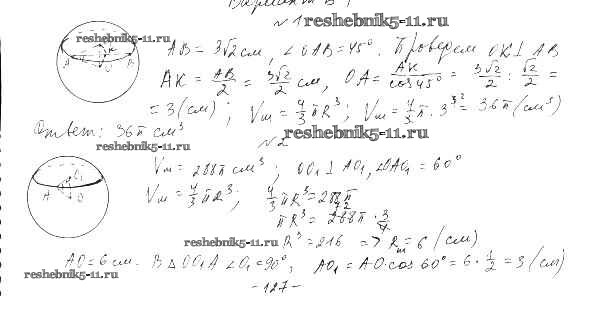 Вариант В 1
№ 1 reshebnik5-11.ru
reshebnik5-11.ru
AB = 3√2 см, ∠OAB = 45°. Проведем OK ⊥ AB
AK = AB/2 = 3√2/2 см, OA = AK/cos45° = 3√2/2 : √2/2 =
= 3 (см); Vш = 4/3 πR³; Vш = 4/3 π · 3³ = 36π (см³)
Ответ: 36π см³
reshebnik5-11.ru
№ 2 reshebnik5-11.ru
Vш = 288π см³; OO₁ ⊥ AO₁, ∠OAO₁ = 60°
Vш = 4/3 πR³; 4/3 πR³ = 288π
πR³ = 288π · 3/4
reshebnik5-11.ru R³ = 216 => Rш = 6 (см)
AO = 6 см. В △ OO₁A ∠O₁ = 90°; AO₁ = AO·cos 60° = 6 · 1/2 = 3 (см)
reshebnik5-11.ru
- 127 -